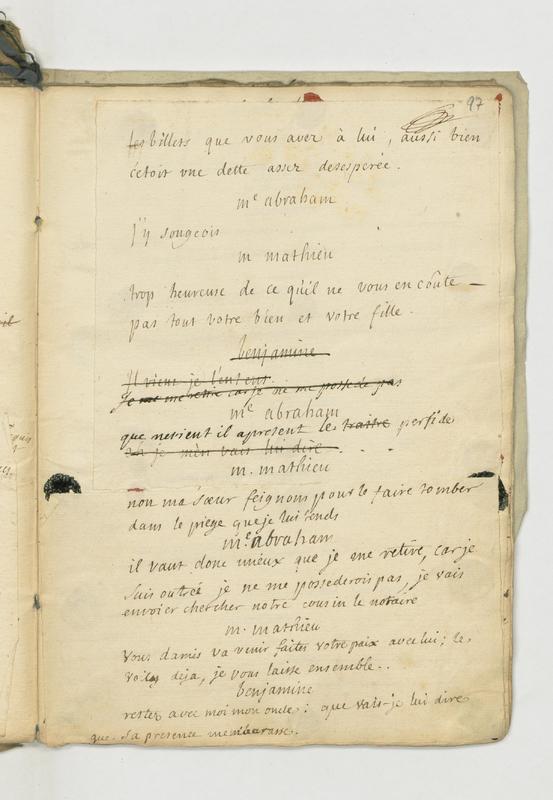 97
les billets que vous avez à lui, aussi bien
cetoit une dette assez desesperée.
me abraham
j'y songeois
m mathieu
trop heureuse de ce qu'il ne vous en coûte
pas tout votre bien et votre fille.
benjamine
Il vient je l'entens.
Je me retire car je ne me possede pas
me abraham
que ne vient il apresent le traitre perfide
ah je m'en vais lui dire
m. mathieu
non ma sœur feignons pour le faire tomber
dans le piege que je lui tends
me abraham
il vaut donc mieux que je me retire, car je
suis outrée je ne me possederois pas, je vais
envoier chercher notre cousin le notaire
m. mathieu
vous damis va venir faites votre paix avec lui; le
voila deja, je vous laisse ensemble..
benjamine
restez avec moi mon oncle: que vais-je lui dire
que sa presence m'embarasse.